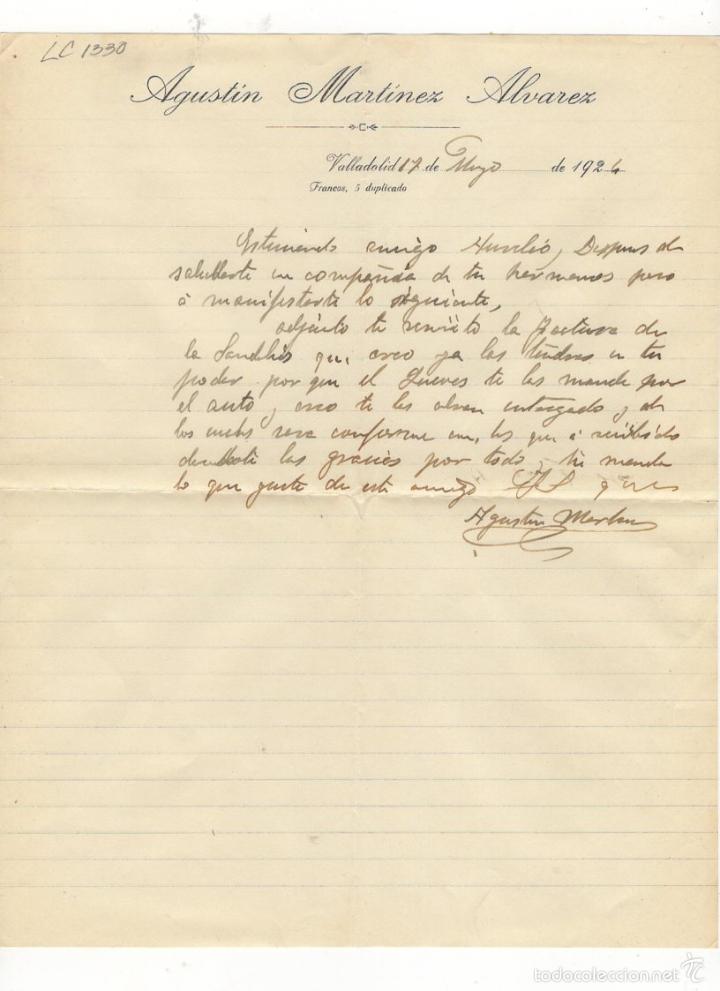 LC 1330
Agustín Martínez Alvarez
Valladolid 17 de Mayo de 1926
Francos, 5 duplicado
Estimado amigo Aurelio, Despues de
saludarte en compañia de tu hermanos paso
á manifestarte lo siguiente,
adjunto te remito la factura de
la que creo ya las tendras en tu
poder por que el Jueves te las mande por
el auto y creo te las entregado y de
los cuales sera conforme con, los que á recibido
las gracias por todo, tu manda
lo que guste de este amigo
Agustin Martinez
todocoleccion.net